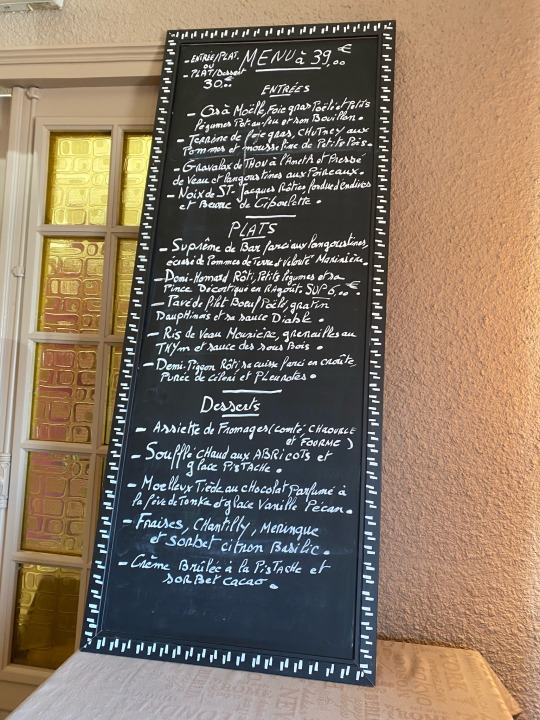 - ENTRÉE/PLAT.
ou
- PLAT/Dessert
30.00€
MENU à 39,00€
ENTRÉES
- Os à Moëlle, Foie gras Poêlé et Petits
légumes Pot-au-feu et son Bouillon.
- Terrine de foie gras, CHUTNEY aux
Pommes et mousseline de Petits Pois.
- Gravalax de THON à l'Aneth et Pressé
de Veau et langoustines aux Poireaux.
- Noix de ST-Jacques Rôties fondue d'endives
et Beurre de Ciboulette.
PLATS
- Suprême de Bar farci aux langoustines,
écrasé de Pommes de Terre et Velouté Marinière.
- Demi-Homard Rôti, Petits légumes et sa
Pince Décortiqué en RAgoût. SUP 6,00€.
- Pavé de Filet Boeuf Poêlé, gratin
Dauphinois et sa sauce Diable.
- Ris de Veau Meunière, grenailles au
THYm et sauce des sous Bois.
- Demi-Pigeon Rôti, sa cuisse farci en croûte,
Purée de Céleri et Pleurotes.
Desserts
- Assiette de Fromages (Comté, CHAOURCE
et FOURME)
- Soufflé CHaud aux ABRICOTS et
glace PISTACHe.
- Moelleux Tiède au CHocolat parfumé à
la fève de Tonka et glace Vanille Pécan.
- Fraises, CHantilly, Meringue
et SORbet citron Basilic.
- Crème Brûlée à la PISTACHe et
SORBet cacao.